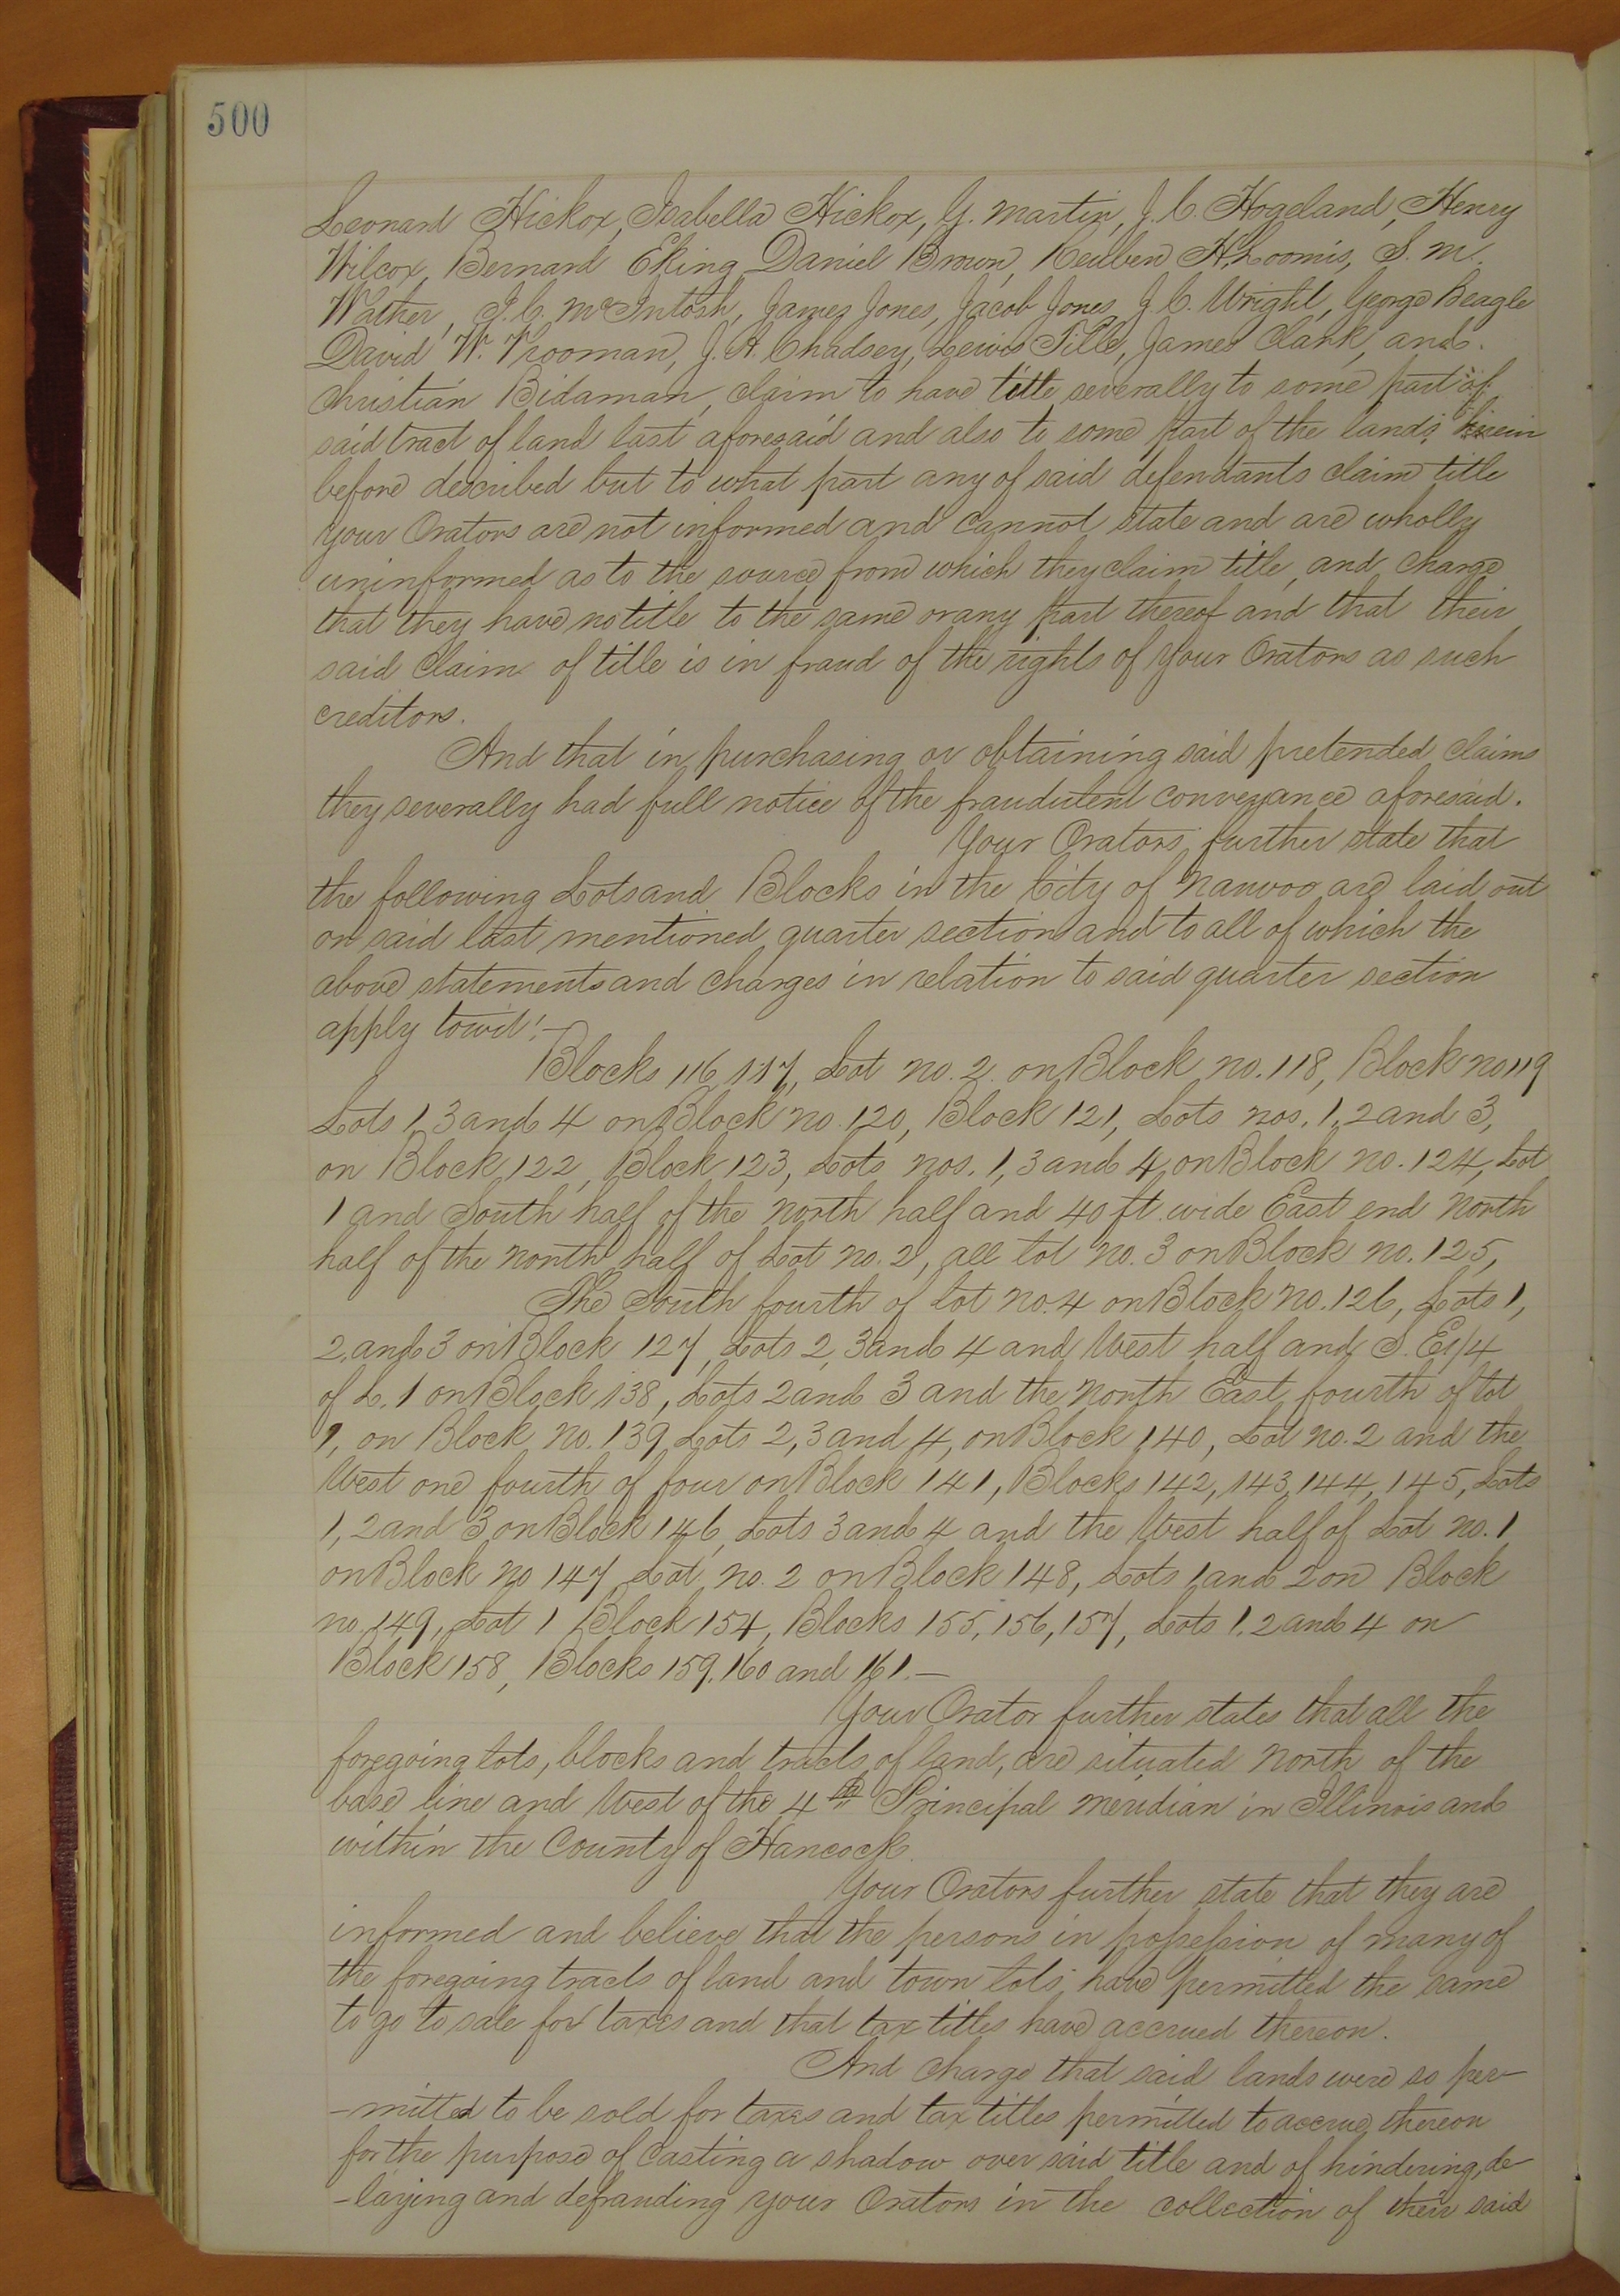 500
Leonard Hickox, Isabella Hickox, G. Martin, J. C. Hogeland, Henry
Wilcox, Bernard Eking Daniel Brown, Reuben H. Loomis, S. M.
Walther, I. C. McIntosh, James Jones, Jacob Jones, J. C. Wright, George Beagle
David W. Vrooman, J. A. Chadsey, Lewis Tille, James Clark, and
Christian Bidaman, claim to have title severally to some part of
said tract of land last aforesaid and also to some part of the lands herein
before described but to what part any of said defendants claim title
your Orators are not informed and cannot state and are wholly
uninformed as to the source from which they claim title, and charge
that they have no title to the same or any part thereof and that their
said claim of title is in fraud of the rights of your Orators as such
creditors.
And that in purchasing or obtaining said pretended claims
they severally had full notice of the fraudulent conveyance aforesaid.
Your Orators further state that
the following Lots and Blocks in the City of Nauvoo are laid out
on said last mentioned quarter section and to all of which the
above statements and charges in relation to said quarter section
apply towit:-
Blocks 116, 117, Lot no. 2. on Block no. 118, Block no 119
Lots 1, 3 and 4 on Block no. 120, Block 121, Lots nos. 1, 2 and 3,
on Block 122, Block 123, Lots nos. 1, 3 and 4, on Block no. 124, Lot
1 and South half of the North half and 40 ft. wide East end North
half of the North half of Lot no. 2, all lot no. 3 on Block no. 125,
The South fourth of lot no. 4 on Block no. 126, Lots 1,
2, and 3 on Block 127, Lots 2, 3 and 4 and West half and S. E 1/4
of L. 1 on Block 138, Lots 2 and 3 and the North East fourth of lot
1, on Block no. 139, Lots 2, 3 and 4, on Block 140, Lot no. 2 and the
West one fourth of four on Block 141, Blocks 142, 143, 144, 145, Lots
1, 2 and 3 on Block 146, Lots 3 and 4 and the West half of Lot no. 1
on Block no 147 Lot no. 2 on Block 148, Lots 1 and 2 on Block
no. 149, Lot 1 Block 154, Blocks 155, 156, 157, Lots 1, 2 and 4 on
Block 158, Blocks 159, 160 and 161.-
Your Orator further states that all the
foregoing lots, blocks and tracts of land, are situated North of the
base line and West of the 4th Principal Meridian in Illinois and
within the County of Hancock.
Your Orators further state that they are
informed and believe that the persons in possession of many of
the foregoing tracts of land and town lots have permitted the same
to go to sale for taxes and that tax titles have accrued thereon.
And charge that said lands were so per-
-mitted to be sold for taxes and tax titles permitted to accrue thereon
for the purpose of casting a shadow over said title and of hindering, de-
-laying and defrauding your Orators in the collection of their said